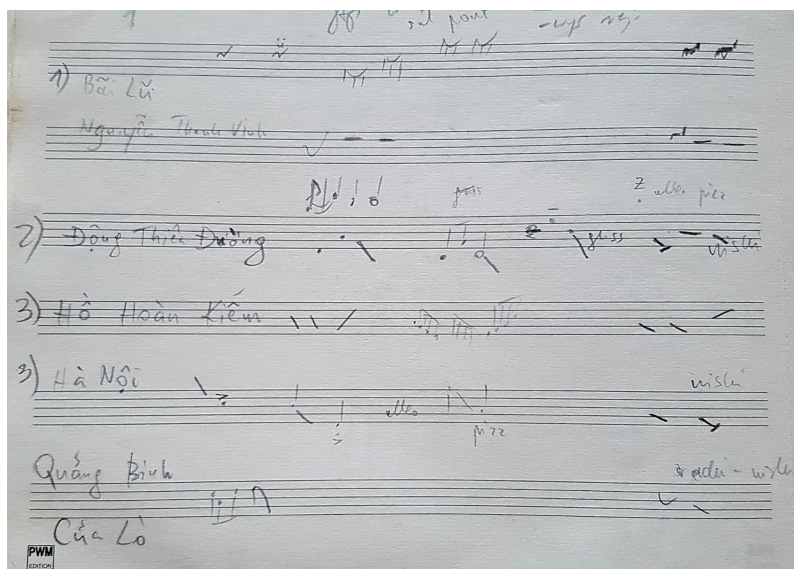 1
sul pont
1) Bãi Lữ
Nguyễn Thanh Vinh
gliss
z albo pizz
2) Động Thiên Đường
gliss
niski
3) Hồ Hoàn Kiếm
3) Hà Nội
niski
albo
pizz
Quảng Bình
Cửa Lò
PWM
EDITION